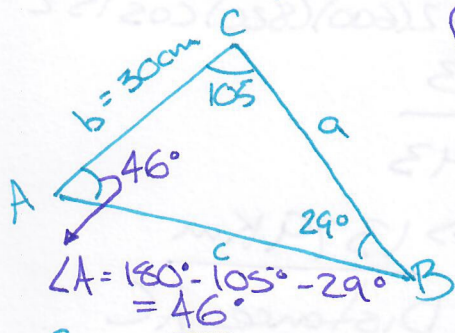 C
b = 30cm
105
a
A
46°
29°
c
B
∠A = 180° - 105° - 29°
= 46°